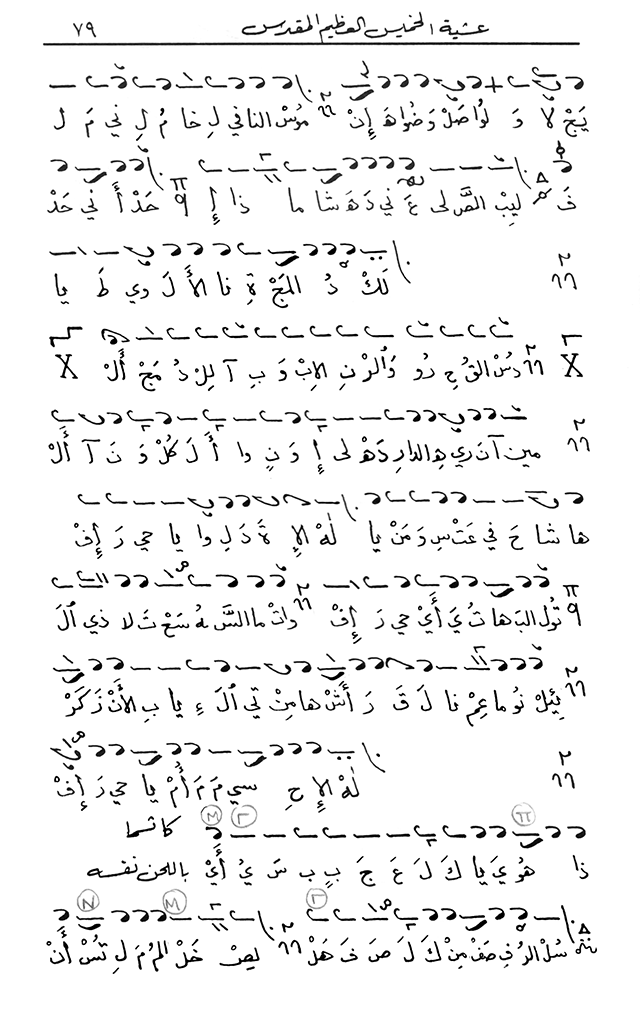 عشية الخميس العظيم المقدس ٧٩
يَجْ لا وَ لُوا صَلْ وَ ضُوا هَـ إِنْ مُوْسْ النا في لِ خا مُ لِ ني مَ لَ
فَ لِيبْ الصَّ لى عَ ني دَ هَـ شا ما ذا إِ حَدْ أَ ني حَدْ
لَكْ دُ المَجْ ةِ نا الأَ لَ وي طَ يا
دُسْ القُ حِ رُو وَالرْ نِ الإِبْ وَ بِ آ لِلْ دُ مَجْ أَلْ
مين آ نَ ري هِـ الدا رِ دَهْـ لى إِ وَ نٍ وا أَ لَ كُلْ وَ نَ آ أَلْ
ها شا حَ في عَتْ سِ وَ مَنْ يا لَهْ الإِ ةَ دَ لِ وا يا حي رَ إِفْ
تُول البَ ها تُ يَ أَيْ حي رَ إِفْ واتْ ما السَّ هُ سَعْ تَ لا ذي اَلَّ
ئِيلْ نُو ما عِمْ نا لَ قَ رَ أَشْ ها مِنْ تي اَلَ ءِ يا بِ الأَنْ زَ كَرْ
لَهْ الإِ حِ سي مَ مَ أُمْ يا حي رَ إِفْ
كاثسما
ذا هُوِيَ يا كَ لَ عَ جَ بِ بِ سَ يُ أَيْ باللحن نفسه
سُلْ الرُ في صَفْ مِنْ كَ لَ صَ فَ هَلْ لِصْ خَلْ المُ مَ لِ تُسْ أَنْ